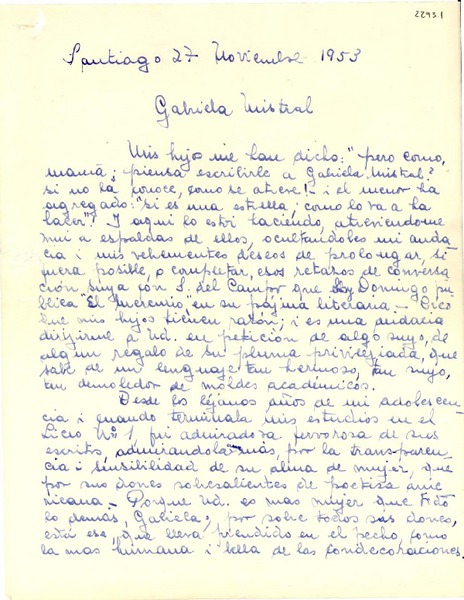 2293.1
Santiago 27 Noviembre 1953
Gabriela Mistral
Mis hijos me han dicho: "pero como,
mamá; piensa escribirle a Gabriela Mistral?
si no la conoce, como se atreve!- i el menor ha
agregado: "si es una estrella; como lo va a
hacer"! Y aqui lo estoi haciendo, atreviendome
mui a espaldas de ellos, ocultandoles mi auda
cia i mis vehementes deseos de prolongar, si
fuera posible, o completar, esos retazos de conversa
ción, suya con S. del Campo que hoy Domingo pu
blica "El Mercurio" en su pájina literaria. - Creo
que mis hijos tienen razón; i es una audacia
dirijirme a Ud. en petición de algo suyo, de
algun regalo de su pluma privilejiada, que
sabe de un lenguaje tan hermoso, tan suyo,
tan demoledor de moldes académicos.
Desde los lejanos años de mi adolescen
cia i cuando terminaba mis estudios en el
Liceo Nº 1, fui admiradora fervorosa de sus
escritos, admirandola más, por la transparen
cia i sensibilidad de su alma de mujer, que
por sus dones sobresalientes de poetisa ame
ricana. - Porque Ud. es mas mujer que todo
lo demás, Gabriela; por sobre todos sus dones,
está ese, que lleva prendido en el pecho, como
la mas humana i bella de las condecoraciones.